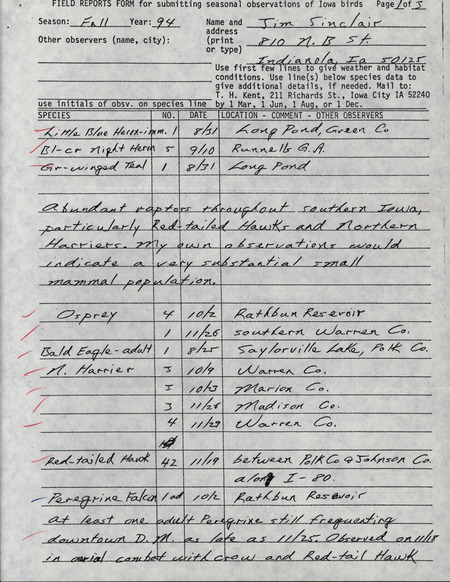 FIELD REPORTS FORM for submitting seasonal observations of Iowa birds Page 1 of 3
Season: Fall Year: 94 Name and Jim Sinclair
address
Other observers (name, city): (print 810 N. B St.
or type)
Indianola, Ia 50125
Use first few lines to give weather and habitat
conditions. Use line(s) below species data to
give additional details, if needed. Mail to:
T. H. Kent, 211 Richards St., Iowa City IA 52240
use initials of obsv. on species line by 1 Mar, 1 Jun, 1 Aug, or 1 Dec.
SPECIES NO. DATE LOCATION - COMMENT - OTHER OBSERVERS
Little Blue Heron-imm. 1 8/31 Long Pond, Green Co
Bl-cr Night Hern 5 9/10 Runnells G.A.
Gr-winged Teal 1 8/31 Long Pond
Abundant raptors throughout southern Iowa,
particularly Red-tailed Hawks and Northern
Harriers. My own observations would
indicate a very substantial small
mammal population.
Osprey 4 10/2 Rathbun Resevoir
1 11/26 southern Warren Co.
Bald Eagle-adult 1 8/25 Saylorville Lake, Polk Co.
N. Harrier 3 10/9 Warren Co.
3 10/13 Marion Co.
3 11/25 Madison Co.
4 11/29 Warren Co.
Red-tailed Hawk 42 11/19 between Polk Co & Johnson Co.
along I-80.
Peregrine Falcon 1 ad 10/2 Rathbun Resevoir
at least one adult Peregrine still frequenting
downtown D.M. as late as 11/25. Observed on 11/18
in aerial combat with crow and Red-tail Hawk